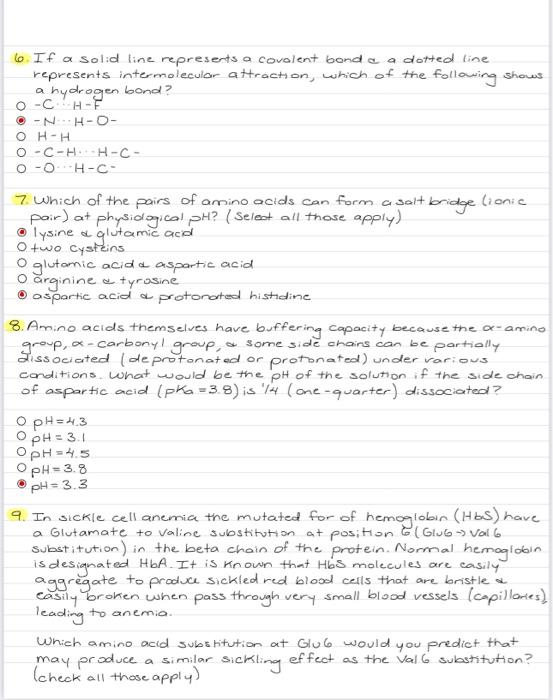 6. If a solid line represents a covalent bond & a dotted line
represents intermolecular attraction, which of the following shows
a hydrogen bond?
-C···H-F
-N···H-O-
H-H
-C-H···H-C-
-O···H-C-
7. Which of the pairs of amino acids can form a salt bridge (ionic
pair) at physiological pH? (Select all those apply)
lysine & glutamic acid
two cysteins
glutamic acid & aspartic acid
arginine & tyrosine
aspartic acid & protonated histidine
8. Amino acids themselves have buffering capacity because the α-amino
group, α-carbonyl group, & some side chains can be partially
dissociated (deprotonated or protonated) under various
conditions. What would be the pH of the solution if the side chain
of aspartic acid (pKa = 3.8) is 1/4 (one-quarter) dissociated?
pH = 4.3
pH = 3.1
pH = 4.5
pH = 3.8
pH = 3.3
9. In sickle cell anemia the mutated for of hemoglobin (HbS) have
a Glutamate to Valine substitution at position 6 (Glu6 → Val6
substitution) in the beta chain of the protein. Normal hemoglobin
is designated HbA. It is known that HbS molecules are easily
aggregate to produce sickled red blood cells that are bristle &
easily broken when pass through very small blood vessels (capillaries),
leading to anemia.
Which amino acid substitution at Glu6 would you predict that
may produce a similar sickling effect as the Val6 substitution?
(check all those apply)